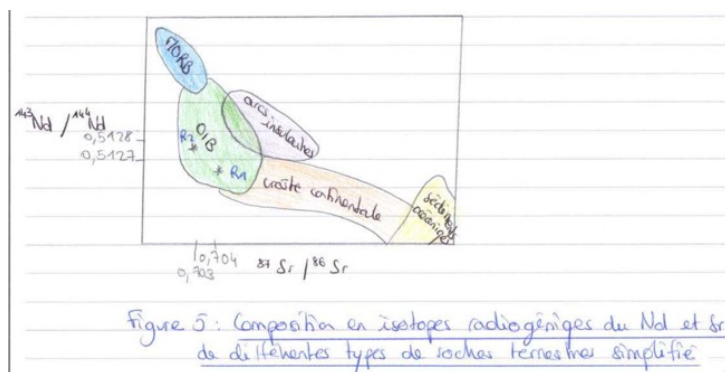 MORB
arcs
insulaires
¹⁴³Nd / ¹⁴⁴Nd
0,5128
0,5127
OIB
R2 *
* R1
croûte continentale
sédiments
océaniques
0,704
0,703
⁸⁷Sr / ⁸⁶Sr
Figure 5 : Composition en isotopes radiogéniques du Nd et Sr
de différentes types de roches terrestres simplifié